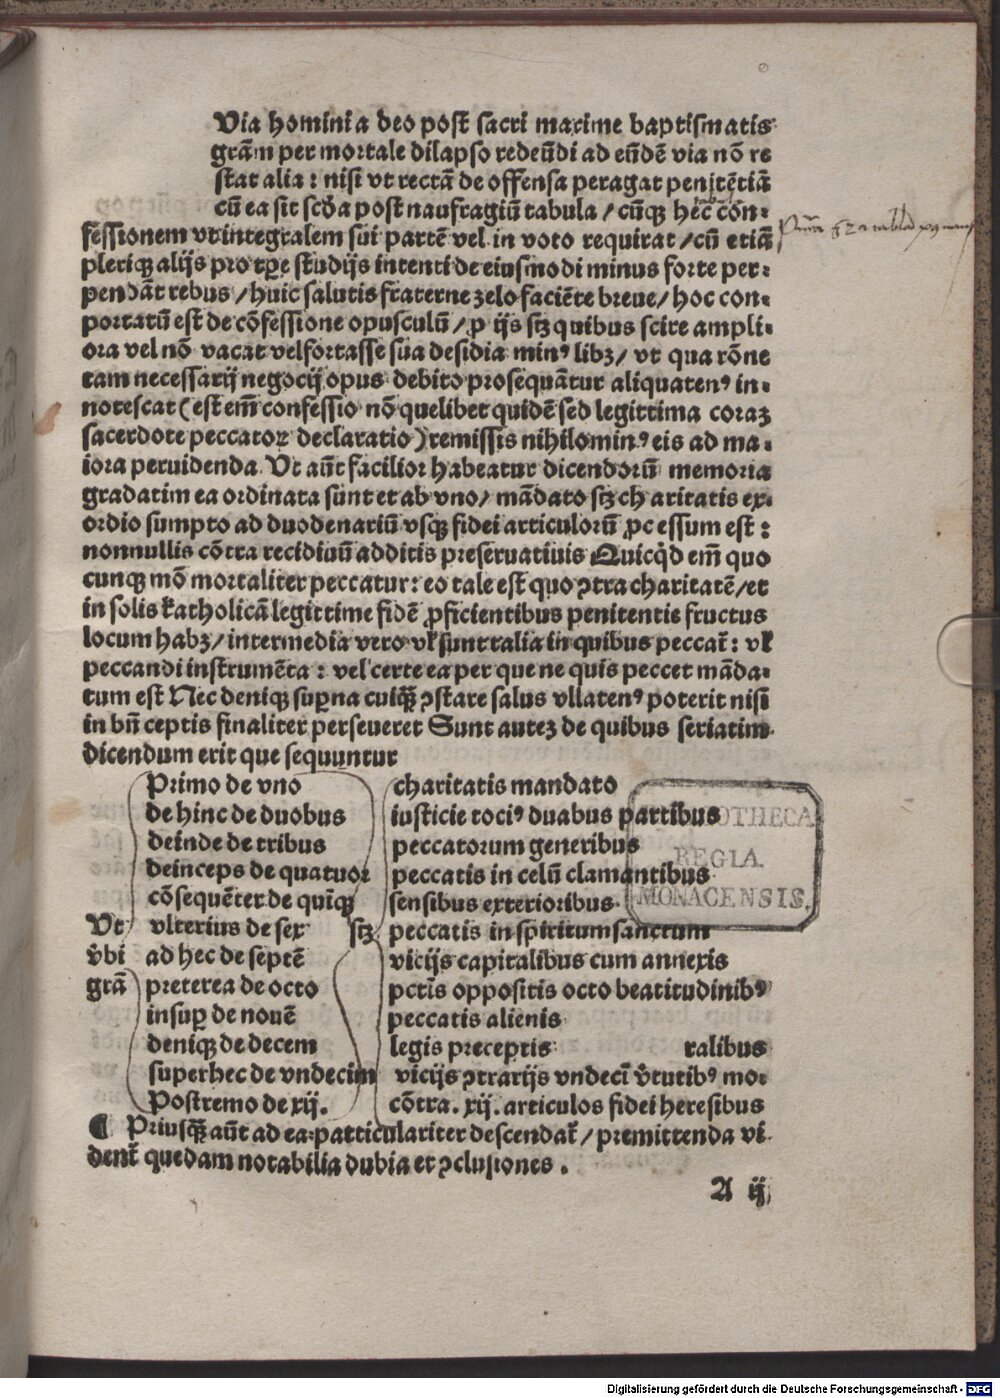 Via homini a deo post sacri maxime baptismatis
grãm per mortale dilapso redeũdi ad eũdẽ via nõ re
stat alia : nisi vt rectã de offensa peragat penitẽtiã
cũ ea sit scḋa post naufragiũ tabula / cũqȝ hec con-
fessionem vt integralem sui partẽ vel in voto requirat / cũ etiã
pleriqȝ alijs pro tꝑe studijs intenti de eiusmodi minus forte per-
pendãt rebus / huic salutis fraterne zelo faciẽte breue / hoc con-
portatũ est de cõfessione opusculũ / ꝓ ijs sꝫ quibus scire ampli-
ora vel nõ vacat vel fortasse sua desidia minꝰ libȝ / vt qua rõne
tam necessarij negocij opus debito prosequãtur aliquatenꝰ in-
notescat ( est em̃ confessio nõ quelibet quidẽ sed legittima coraȝ
sacerdote peccatoꝝ declaratio ) remissis nihilominꝰ eis ad ma-
iora peruidenda. Vt aũt facilior habeatur dicendorũ memoria
gradatim ea ordinata sunt et ab vno / mãdato sꝫ ch aritatis ex-
ordio sumpto ad duodenariũ vsqȝ fidei articulorũ ꝓcessum est :
nonnullis cõtra recidiuũ additis preseruatiuis Quicq̇d em̃ quo
cunqȝ mõ mortaliter peccatur : eo tale est quo ꝯtra charitatẽ / et
in solis katholicã legittime fidẽ ꝓficientibus penitentie fructus
locum habȝ / intermedia vero vl̕ sunt talia in quibus peccat̃ : vl̕
peccandi instrumẽta : vel certe ea per que ne quis peccet mãda-
tum est Nec deniqȝ suꝑna cuiqȝ̃ ꝯstare salus vllatenꝰ poterit nisi
in bñ ceptis finaliter perseueret Sunt auteȝ de quibus seriatim
dicendum erit que sequuntur
Primo de vno charitatis mandato
de hinc de duobus iusticie tociꝰ duabus partibus
deinde de tribus peccatorum generibus
deinceps de quatuor peccatis in celũ clamantibus
cõsequẽter de quĩqȝ sensibus exterioribus
Vt vlterius de sex sꝫ peccatis in spiritum sanctum
v̇bi ad hec de septẽ vicijs capitalibus cum annexis
grã preterea de octo pctĩs oppositis octo beatitudinibꝰ
insuꝑ de nouẽ peccatis alienis
deniqȝ de decem legis preceptis ralibus
super hec de vndecim vicijs ꝯtrarijs vndecĩ v̇tutibꝰ mo-
Postremo de xij. cõtra. xij. articulos fidei heresibus
¶ Priusqȝ̃ aũt ad ea particulariter descendat̃ / premittenda vi
dent̃ quedam notabilia dubia et ꝯclusiones .
A ij
BIBLIOTHECA
REGIA
MONACENSIS.
Digitalisierung gefördert durch die Deutsche Forschungsgemeinschaft - DFG